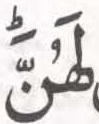 لَهُنَّؕ